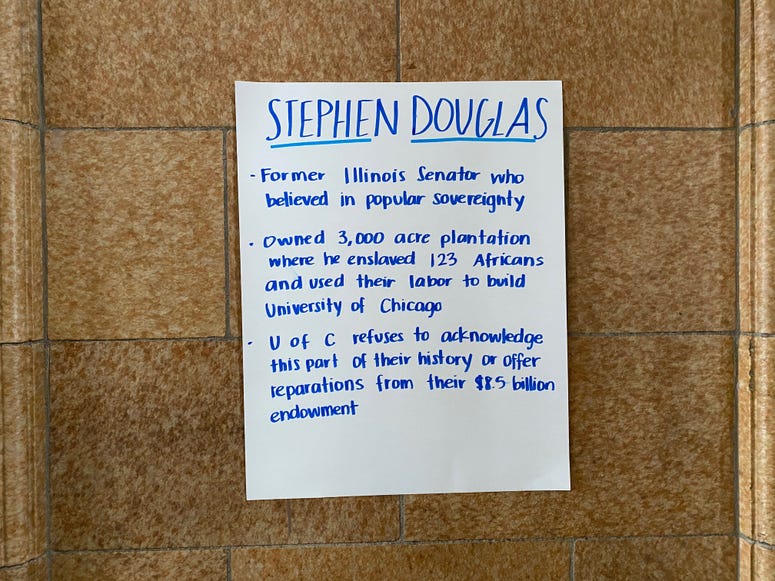 STEPHEN DOUGLAS
- Former Illinois Senator who
believed in popular sovereignty
• Owned 3,000 acre plantation
where he enslaved 123 Africans
and used their labor to build
University of Chicago
• U of C refuses to acknowledge
this part of their history or offer
reparations from their $8.5 billion
endowment